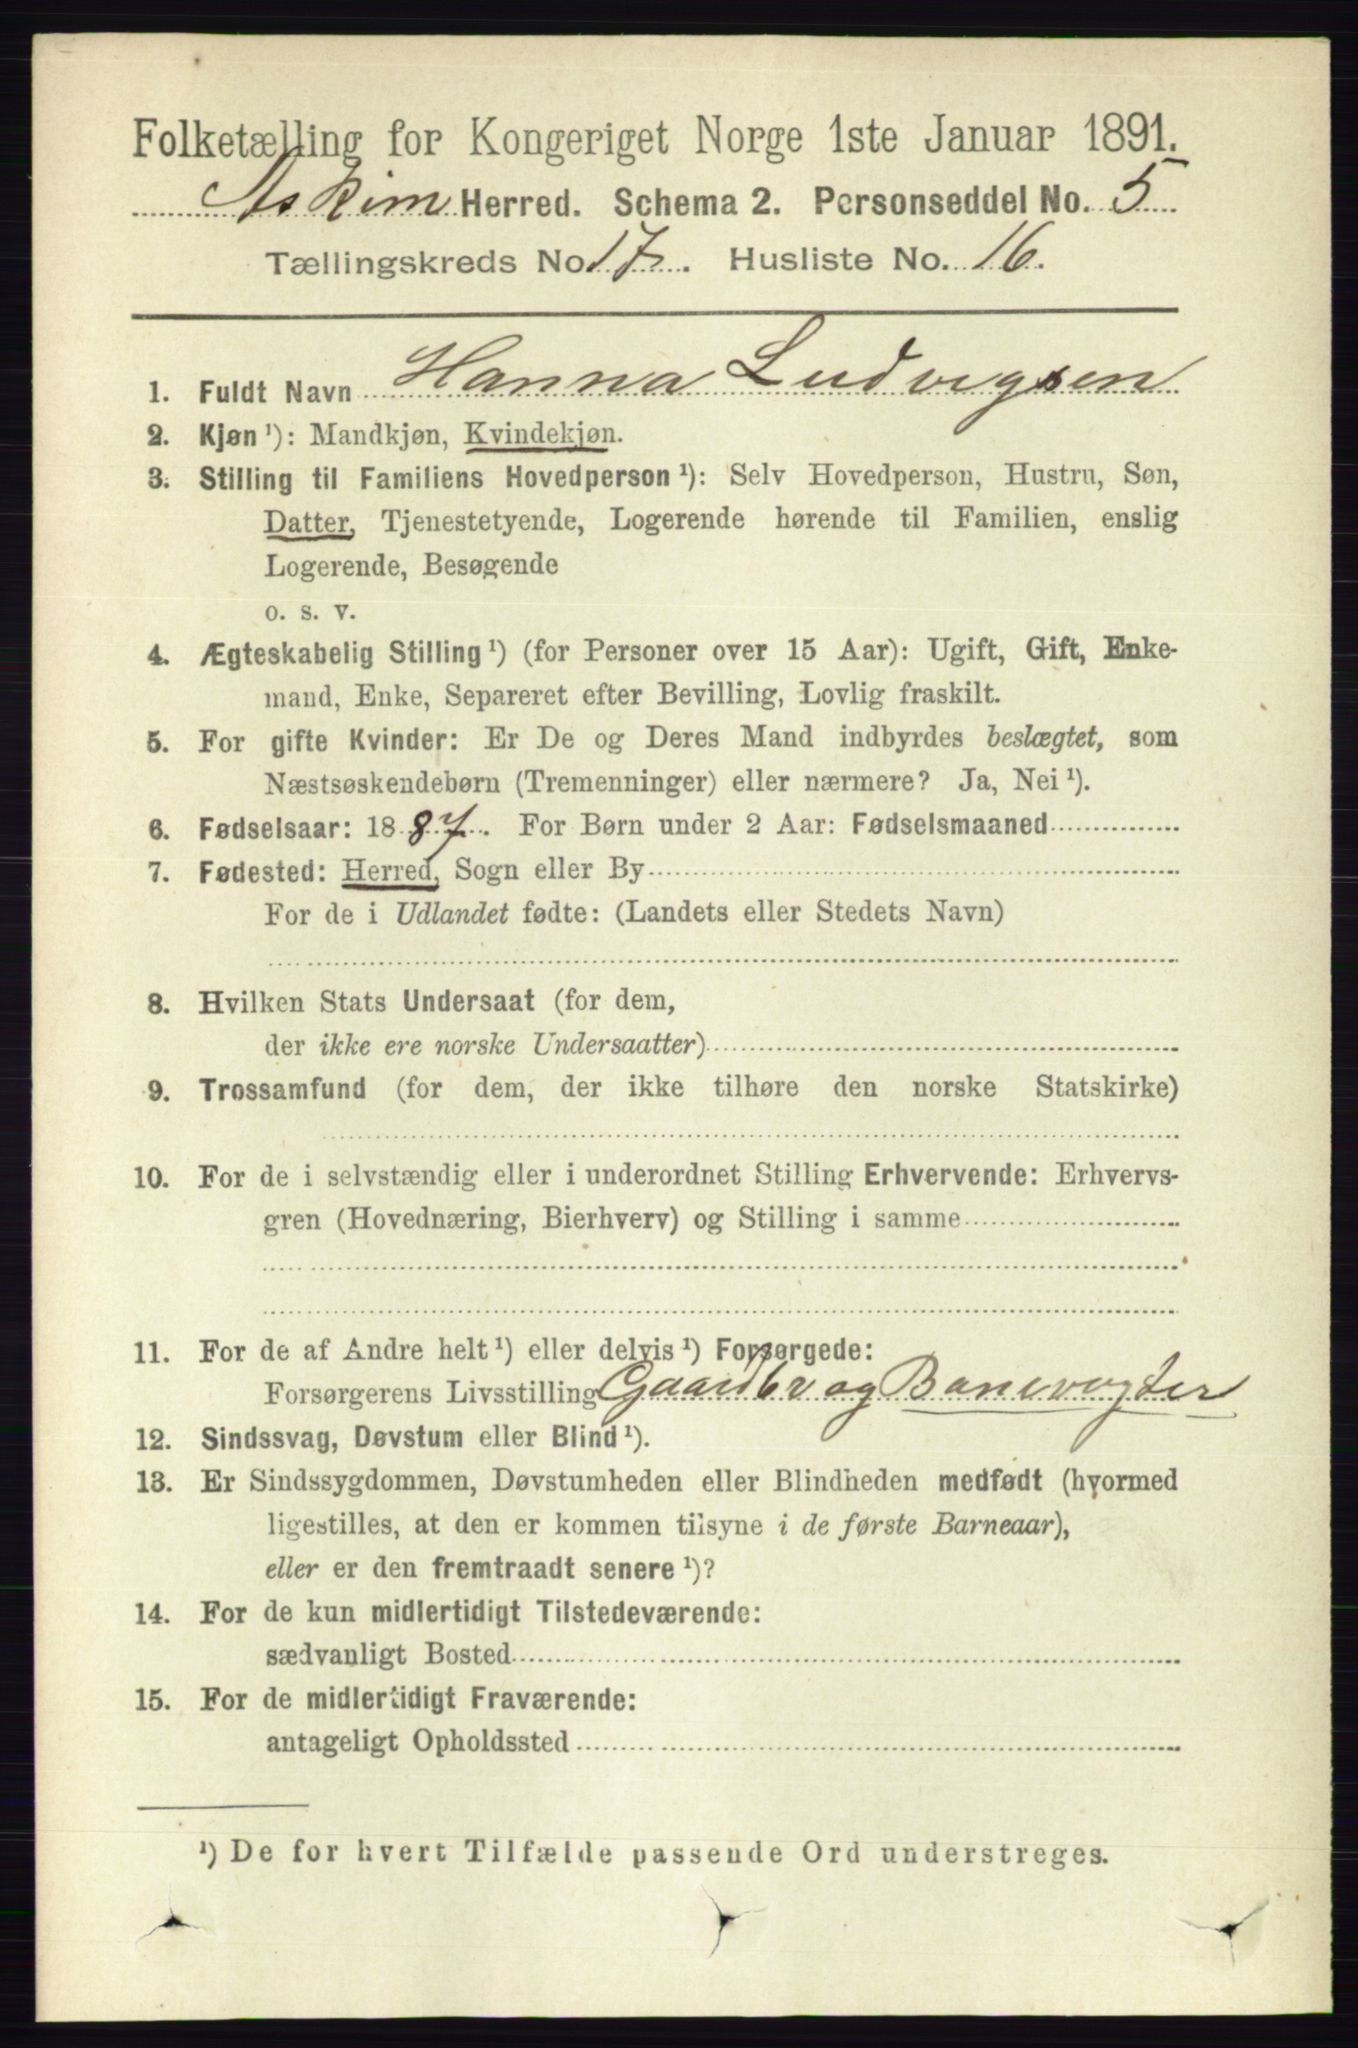 Folketælling for Kongeriget Norge 1ste Januar 1891.
Askim Herred. Schema 2. Personseddel No. 5
Tællingskreds No. 17. Husliste No. 16.
1. Fuldt Navn Hanna Ludvigsen
2. Kjøn ¹): Mandkjøn, Kvindekjøn.
3. Stilling til Familiens Hovedperson ¹): Selv Hovedperson, Hustru, Søn,
Datter, Tjenestetyende, Logerende hørende til Familien, enslig
Logerende, Besøgende
o. s. v.
4. Ægteskabelig Stilling ¹) (for Personer over 15 Aar): Ugift, Gift, Enke-
mand, Enke, Separeret efter Bevilling, Lovlig fraskilt.
5. For gifte Kvinder: Er De og Deres Mand indbyrdes beslægtet, som
Næstsøskendebørn (Tremenninger) eller nærmere? Ja, Nei ¹).
6. Fødselsaar: 1887. For Børn under 2 Aar: Fødselsmaaned
7. Fødested: Herred, Sogn eller By
For de i Udlandet fødte: (Landets eller Stedets Navn)
8. Hvilken Stats Undersaat (for dem,
der ikke ere norske Undersaatter)
9. Trossamfund (for dem, der ikke tilhøre den norske Statskirke)
10. For de i selvstændig eller i underordnet Stilling Erhvervende: Erhvervs-
gren (Hovednæring, Bierhverv) og Stilling i samme
11. For de af Andre helt ¹) eller delvis ¹) Forsørgede:
Forsørgerens Livsstilling Gaardbr og Banevogter
12. Sindssvag, Døvstum eller Blind ¹).
13. Er Sindssygdommen, Døvstumheden eller Blindheden medfødt (hvormed
ligestilles, at den er kommen tilsyne i de første Barneaar),
eller er den fremtraadt senere ¹)?
14. For de kun midlertidigt Tilstedeværende:
sædvanligt Bosted
15. For de midlertidigt Fraværende:
antageligt Opholdssted
¹) De for hvert Tilfælde passende Ord understreges.